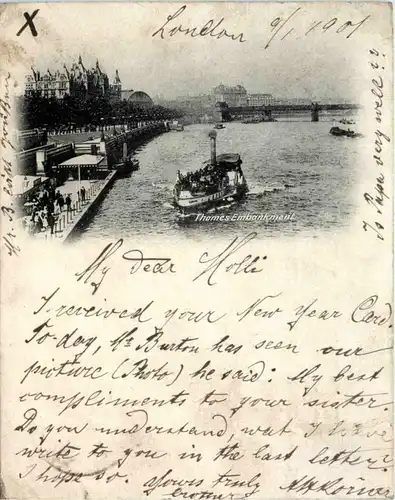 X
London 9/1 1901
Thames Embankment
Is Papa very well??
My dear Molli
I received your New Year Card.
To-day, Mr Burton has seen our
picture (Photo) he said: My best
compliments to your sister.
Do you understand, wat I have
write to you in the last letter?
I hope so. Yours truly
brother
Mr B. lässt